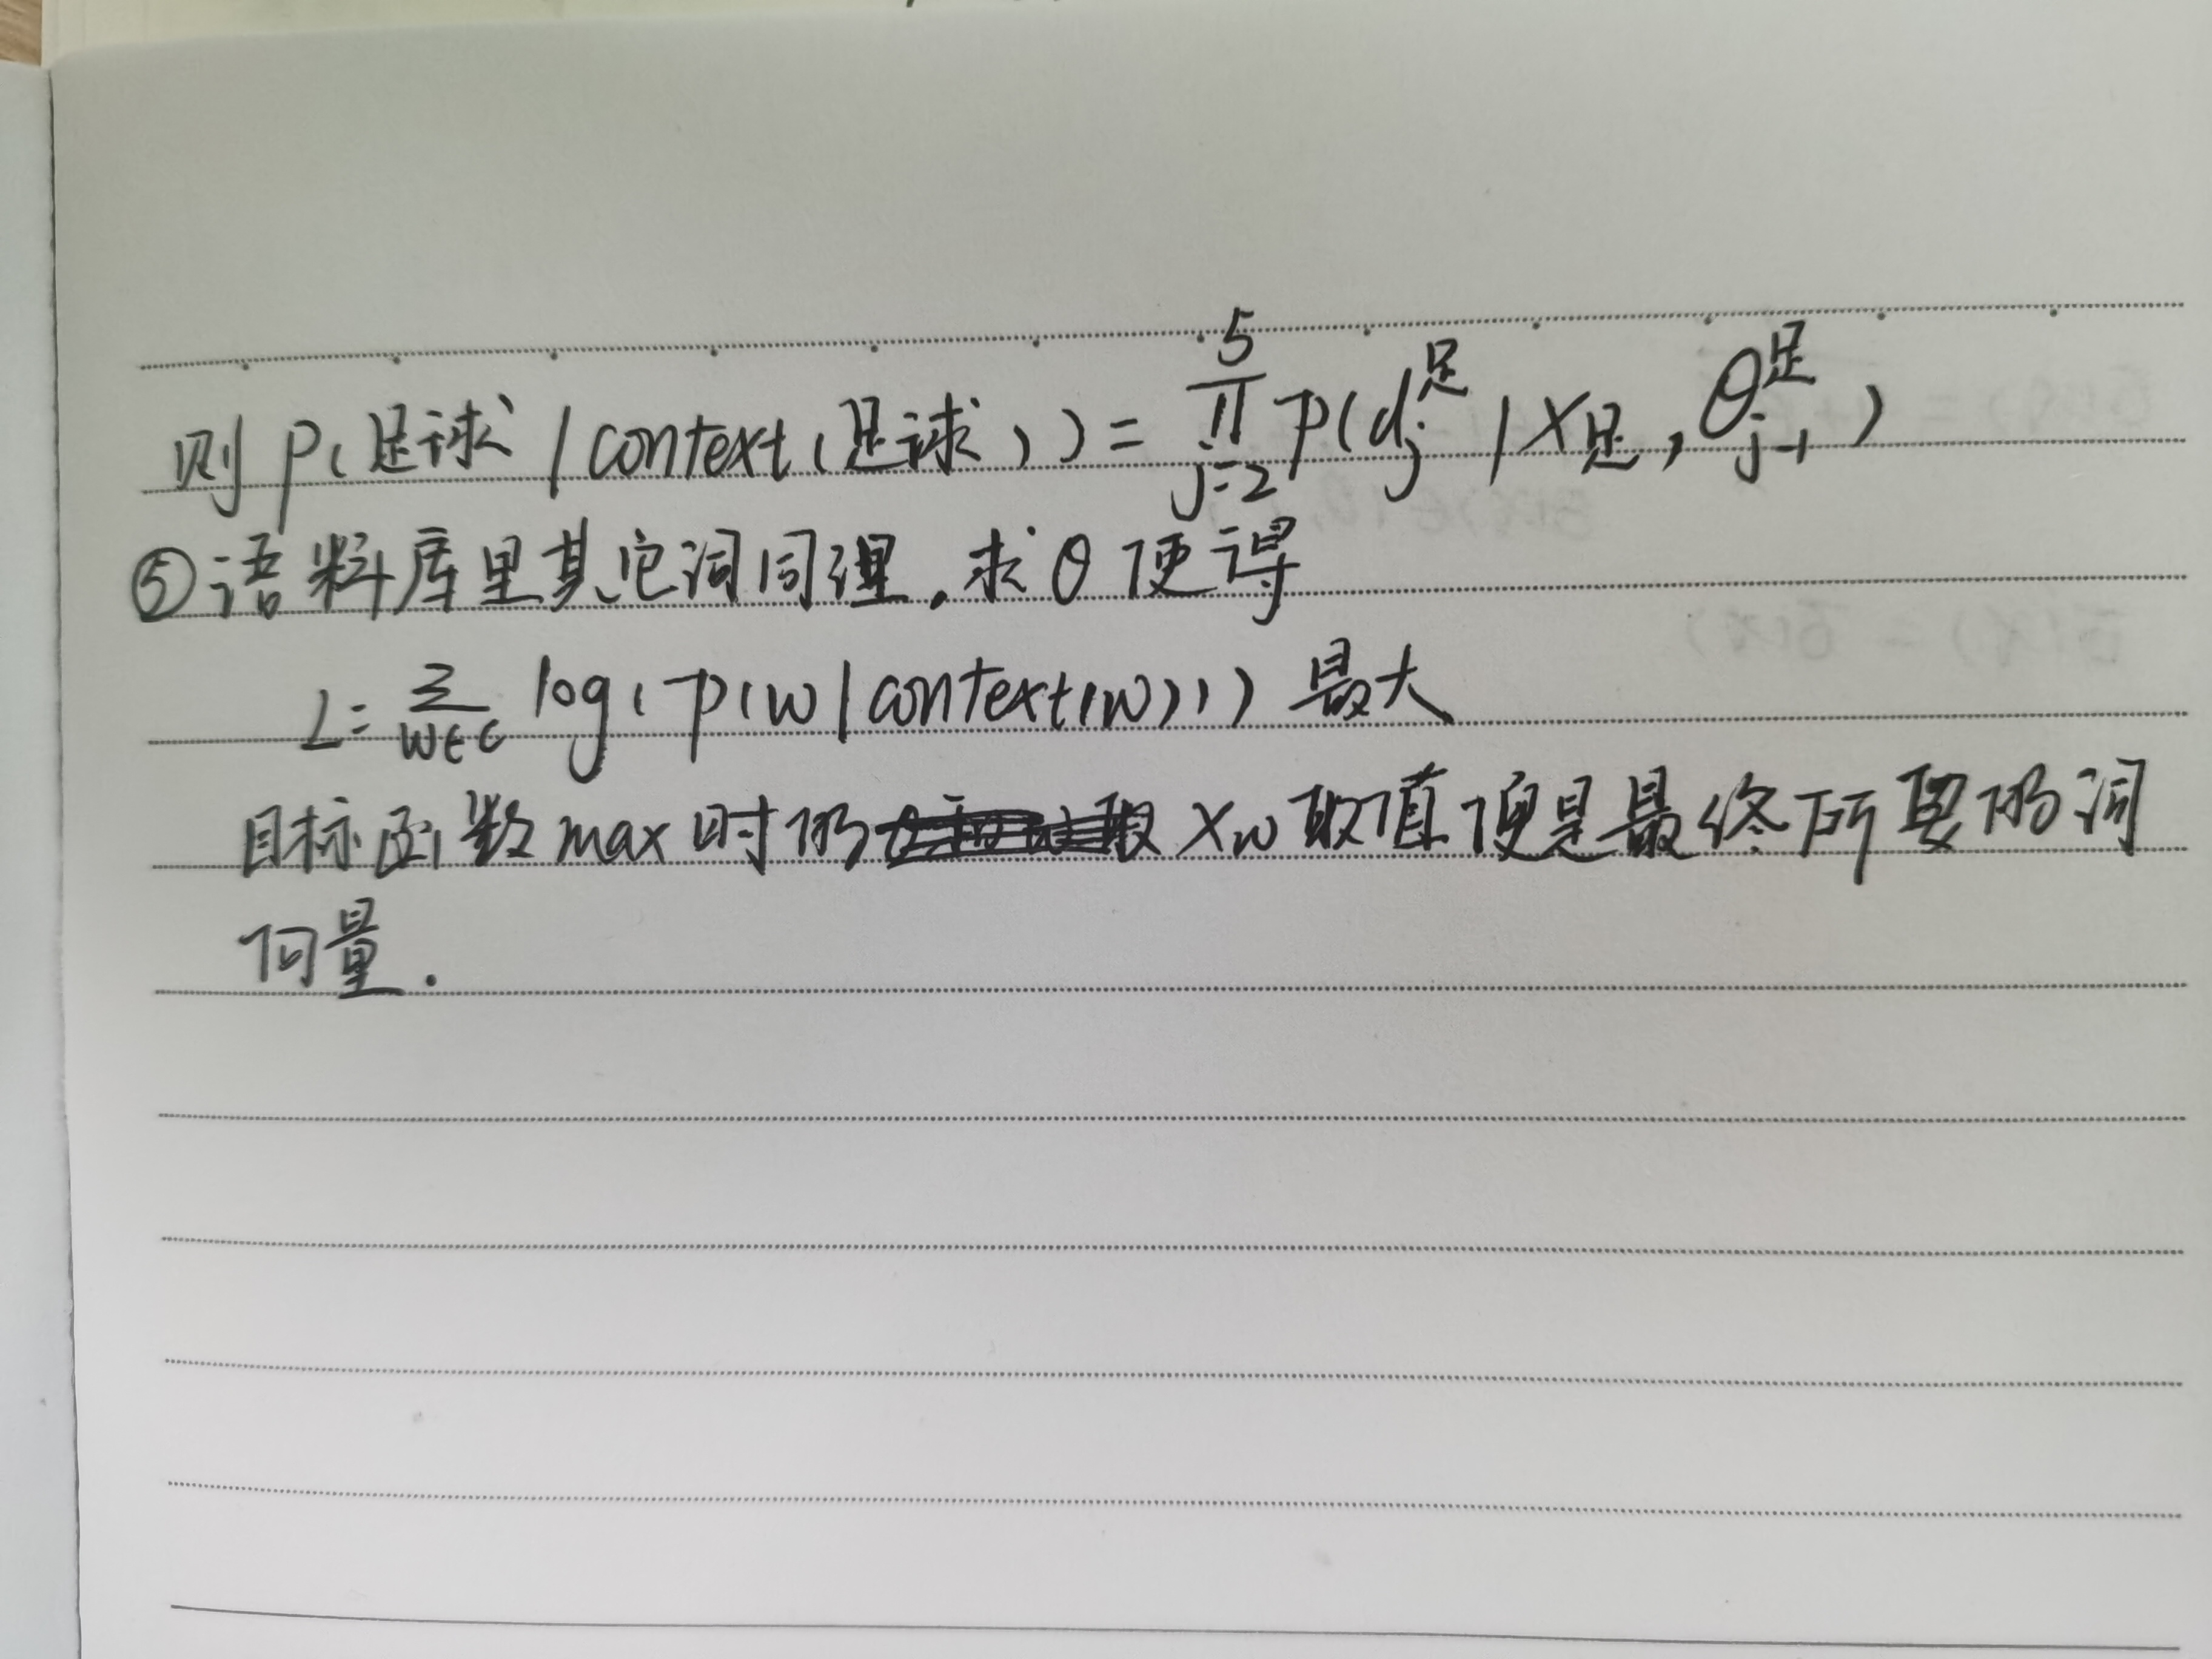 则 p(足球 | context(足球)) = ∏_{j=2}^{5} p(d_j^足 | X_足, θ_{j-1}^足)
⑤语料库里其它词同理,求θ使得
L=∑_{w∈C} log(p(w|context(w))) 最大
目标函数max时的 Xw取值便是最终所要的词
向量.